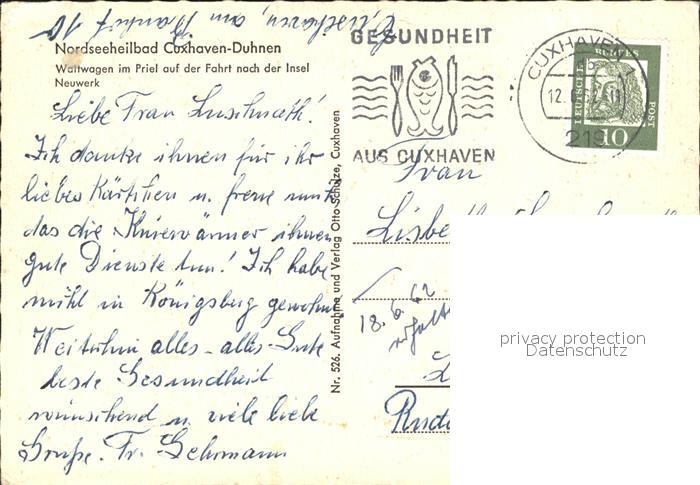 Cuxhaven, am Bahnhof 10
Nordseeheilbad Cuxhaven-Duhnen
Wattwagen im Priel auf der Fahrt nach der Insel
Neuwerk
Liebe Frau
Ich danke ihnen für ihr
liebes Kärtchen u. freue mich
das die Knierwärmer ihnen
gute Dienste tun! Ich habe
nicht in Königsberg gewohnt
Weiterhin alles - alles - Gute
beste Gesundheit
wünschend u. viele liebe
Grüße. Fr. Gehrmann
Nr. 526. Aufnahme und Verlag Otto Schulze, Cuxhaven
GESUNDHEIT
AUS CUXHAVEN
CUXHAVEN
12.
219
DEUTSCHE BUNDESPOST
10
Frau
Lisbe
18.6.62
erhalt
Rudo
privacy protection
Datenschutz